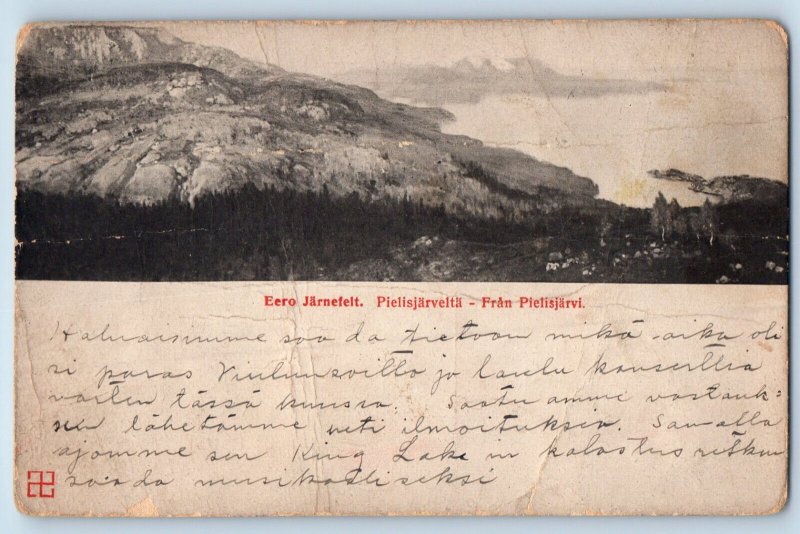 Eero Järnefelt. Pielisjärveltä - Från Pielisjärvi.
Haluaisimme saada tietoon mikä aika oli
si paras Viulunsoitto ja laulu konserttia
varten tässä kuussa. Saatuamme vastauk=
sen lähetämme heti ilmoituksia. Samalla
ajomme sen King Lake in kalastus retken
saada musikaaliseksi